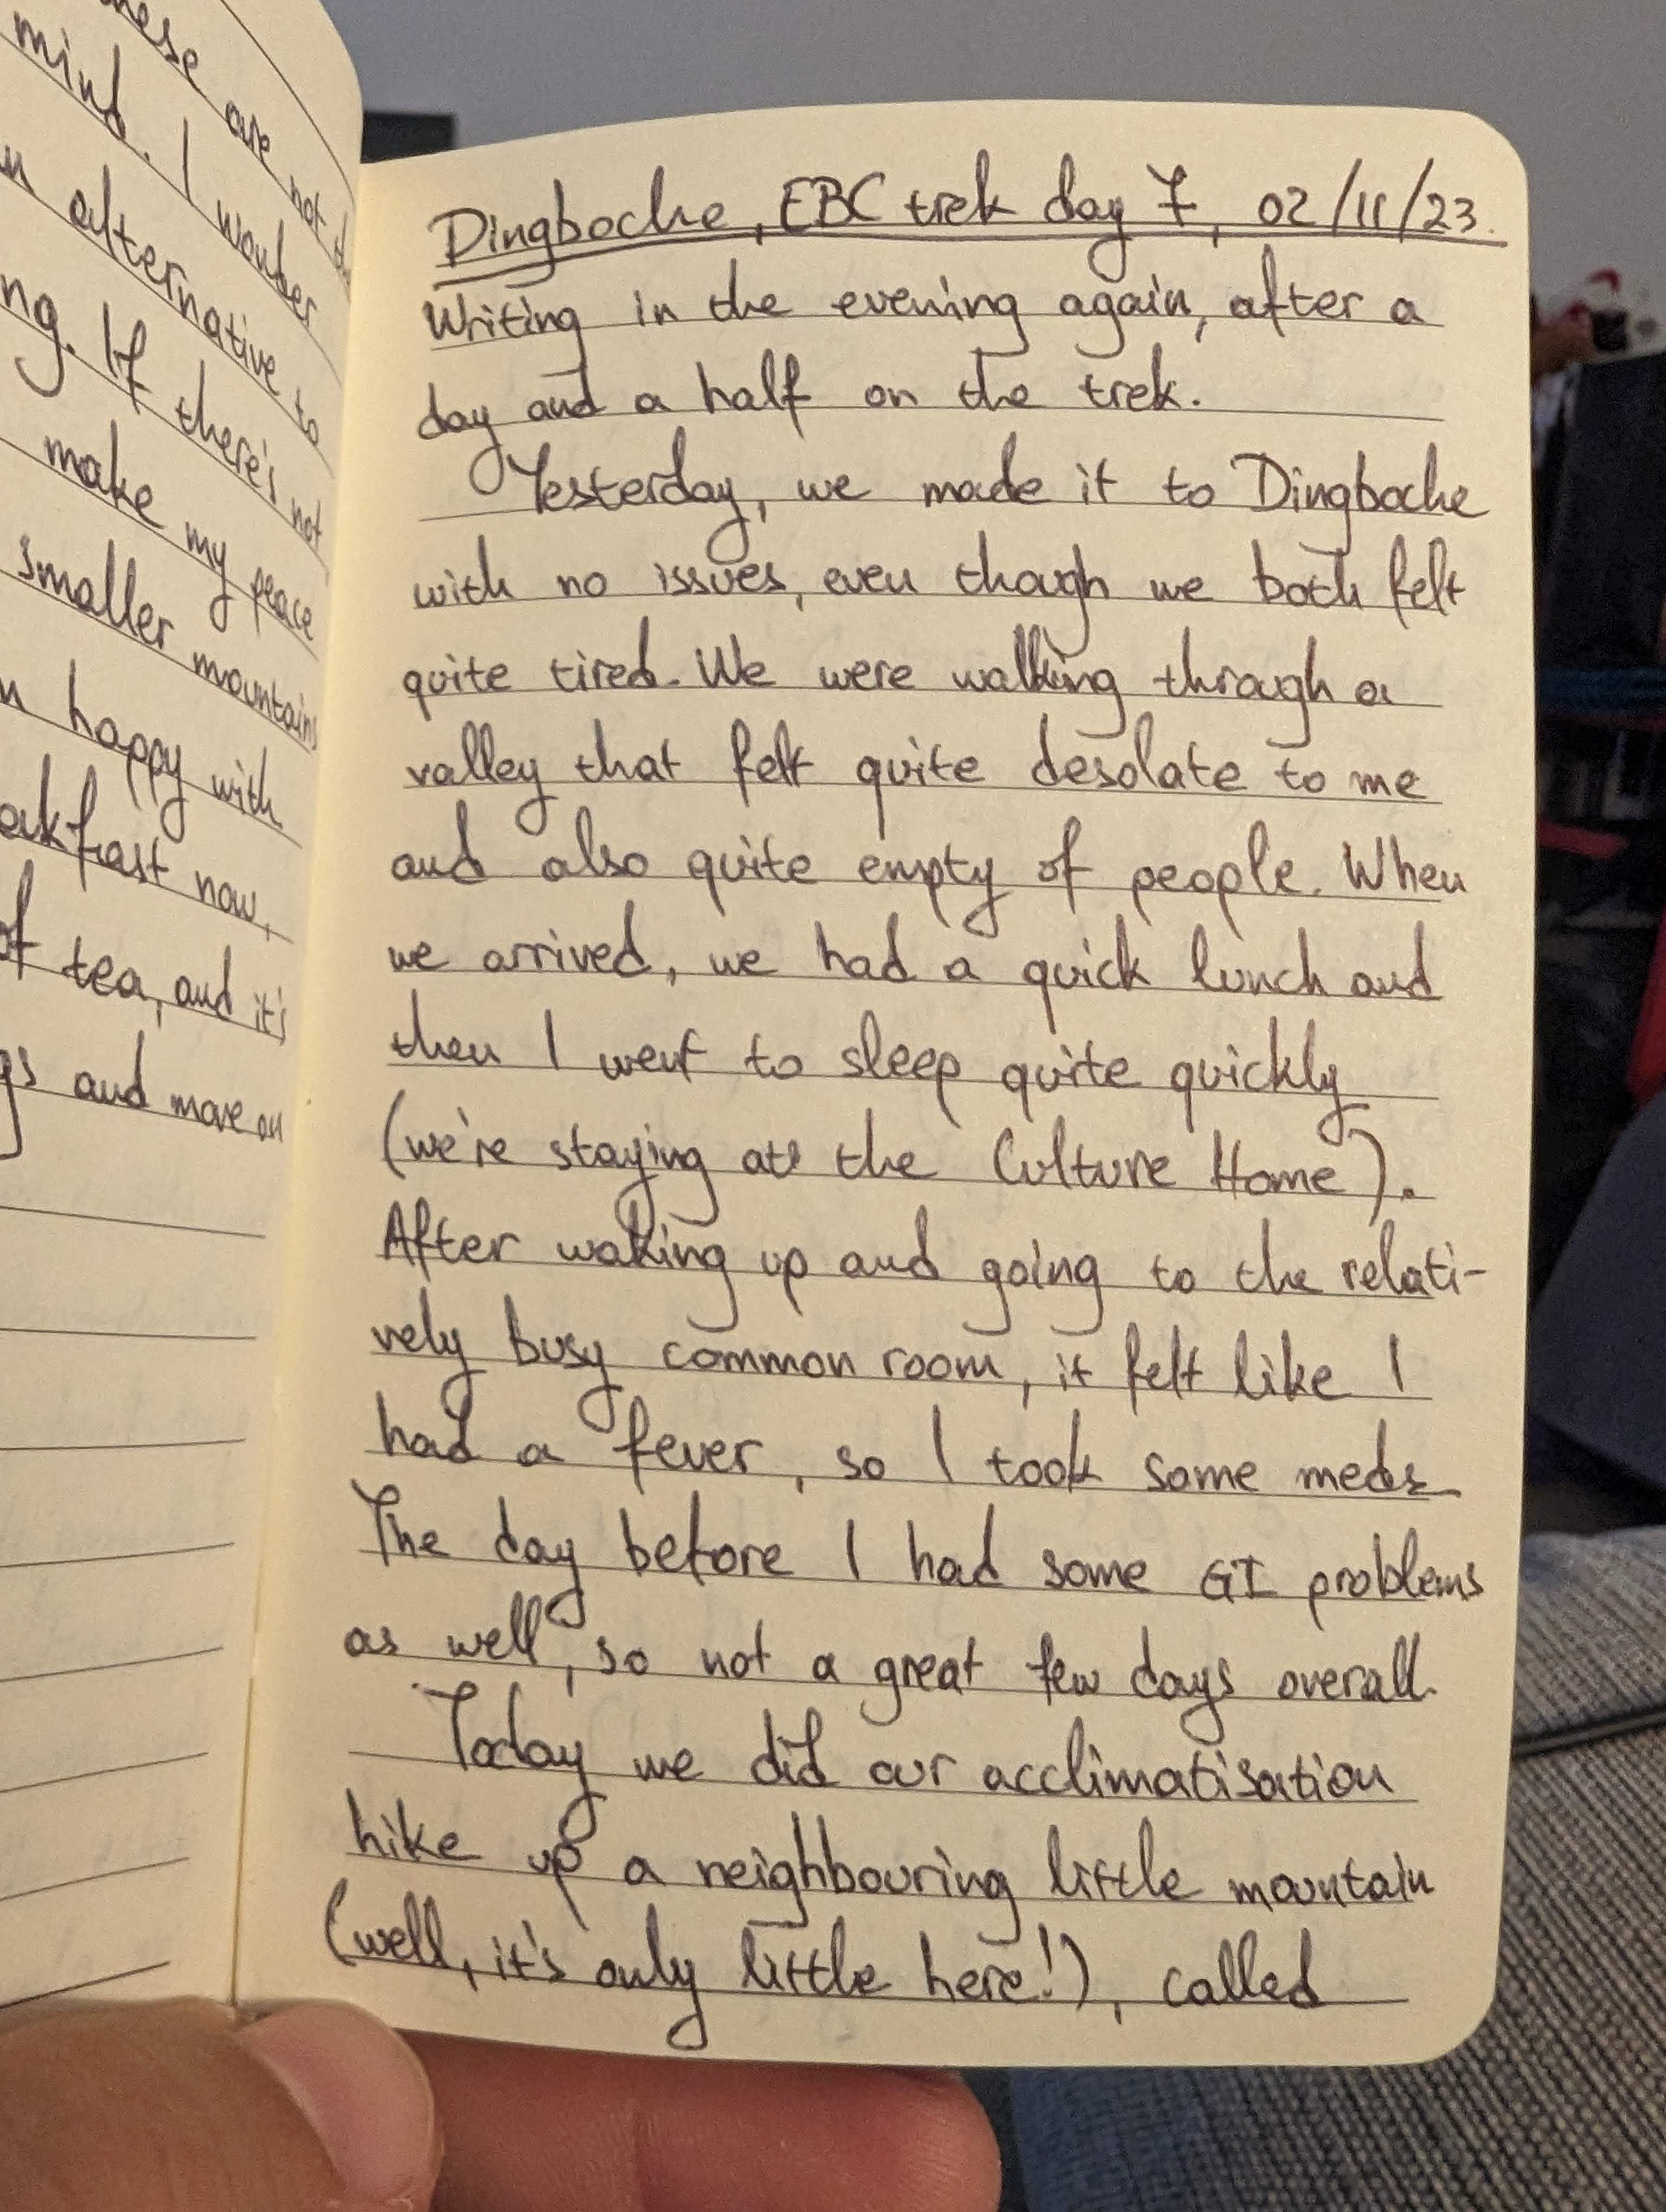 are not
mind. I wonder
alternative to
ng. If there's not
make my peace
smaller mountains
happy with
now,
of tea, and it's
and move on
Dingboche, EBC trek day 7, 02/11/23.
Writing in the evening again, after a
day and a half on the trek.
Yesterday, we made it to Dingboche
with no issues, even though we both felt
quite tired. We were walking through a
valley that felt quite desolate to me
and also quite empty of people. When
we arrived, we had a quick lunch and
then I went to sleep quite quickly
(we're staying at the Culture Home).
After waking up and going to the relati-
vely busy common room, it felt like I
had a fever, so I took some meds
The day before I had some GI problems
as well, so not a great few days overall.
Today we did our acclimatisation
hike up a neighbouring little mountain
(well, it's only little here!), called